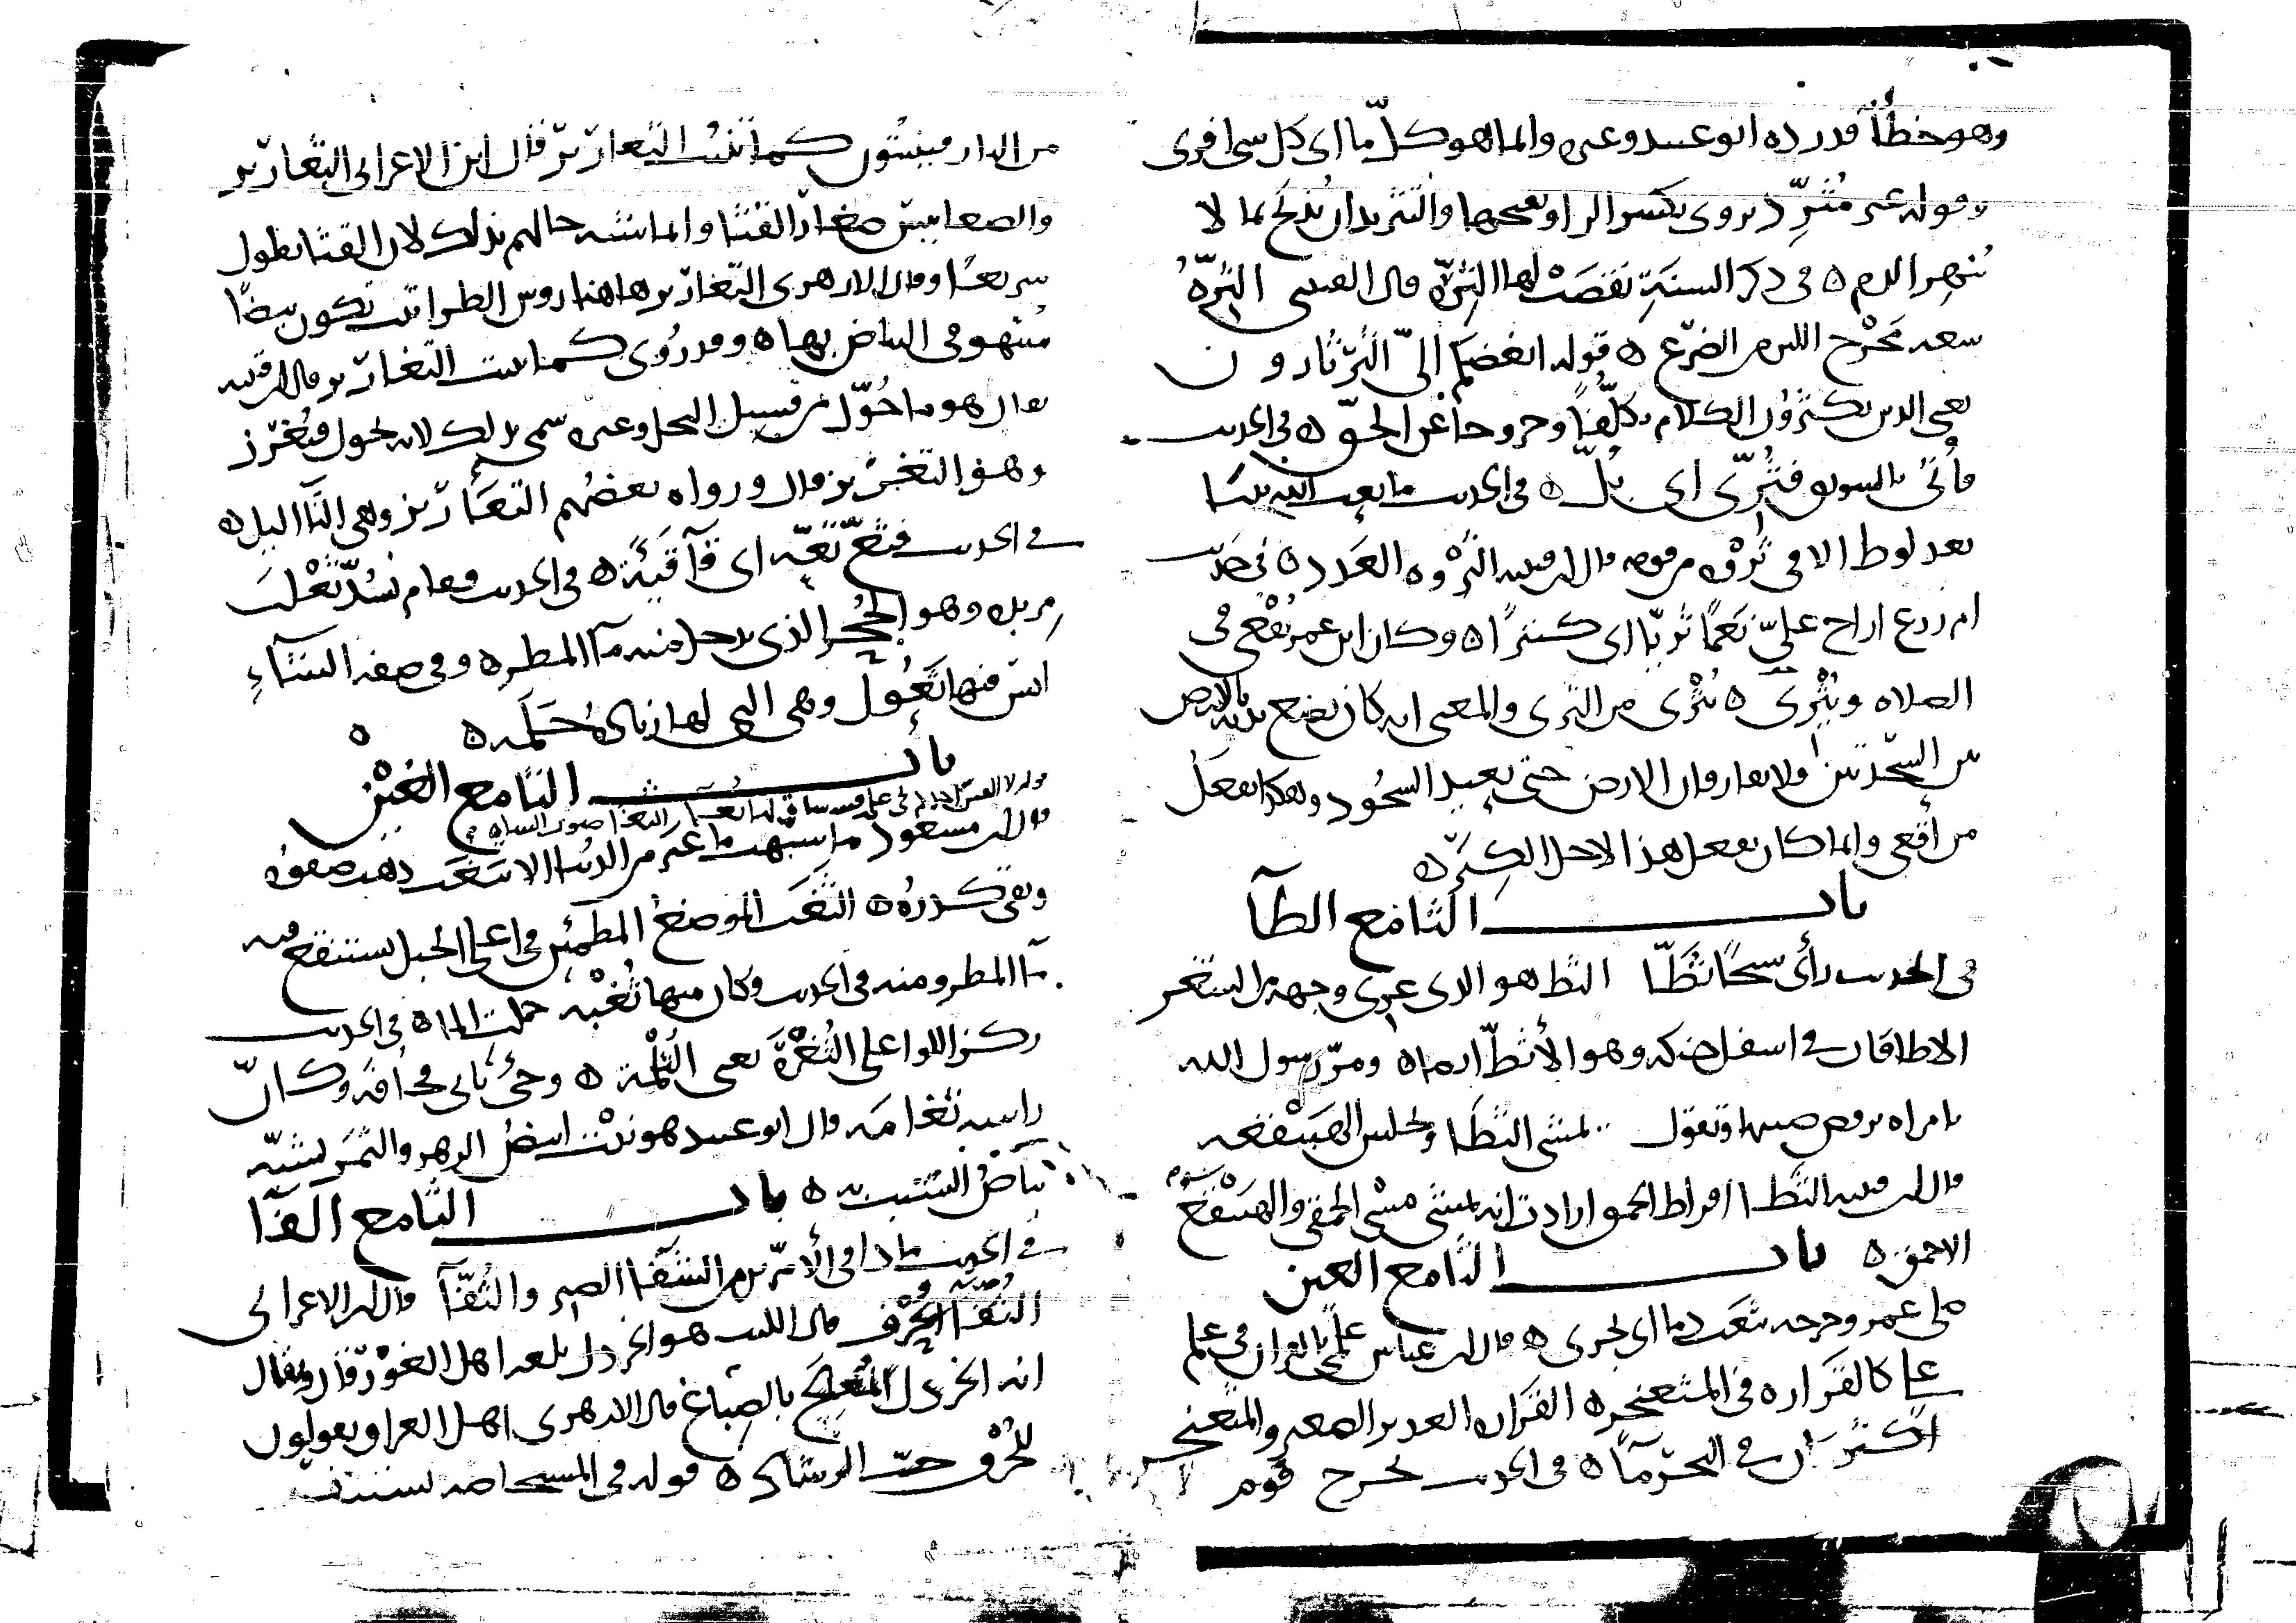 وهو خطأ قد رده ابو عبيد وغيره وانما هو كل ما اي كل شي افرى
وقوله غير مثرد يروى بكسر الرا وبفتحها والتثريد ان يذبح بما لا
ينهر الدم ٥ في ذكر السنة نقصت لها الثرة قال القتيبي الثرة
سعة مخرج اللبن من الضرع ٥ قوله ابغضكم الي الثرثارون
يعني الذين يكثرون الكلام تكلفا وخروجا عن الحق ٥ في الحديث
فأتي بالسويق فثري اي بل ٥ في الحديث ما بعث الله نبيا
بعد لوط الا في ثروة من قومه قال ابن قتيبه الثروه العدد ٥ في حديث
ام زرع اراح علي نعما ثريا اي كثيرا ٥ وكان ابن عمر يقعي في
الصلاه ويثري ٥ يثري من الثرى والمعنى انه كان يضع يديه بالارض
بين السجدتين ولا يفارقان الارض حتى يعيد السجود وهكذا يفعل
من اقعى وانما كان يفعل هذا لاجل الكبر ٥
باب الثا مع الطآ
في الحديث رأى شيخا ثطا الثط هو الذي عري وجهه من الشعر
الا طاقات في اسفل حنكه وهو الأثط ايضا ٥ ومر رسول الله
بامراه ترقص صبيها وتقول يمشي الثطا ويجلس الهبنقعه
قال ابن قتيبه الثطا افراط الحمق ارادت انه يمشي مشي الحمقى والهبنقع
الاحمق ٥ باب الثا مع العين
صلى عمر وجرحه يثعب دما اي يجري ٥ قال ابن عباس علمي بالقران في علم
علي كالقراره في المثعنجر ٥ القراره الغدير الصغير والمثعنجر
اكثر مكان في البحر مآ ٥ في الحديث يخرج قوم
من النار فينبتون كما تنبت الثعارير قال ابن الاعرابي الثعارير
والضغابيس صغار القثا وانما شبه حالهم بذلك لان القثا يطول
سريعا وقال الازهري الثعارير هاهنا روس الطراثيث تكون بيضا
فشبهوا في البياض بها ٥ وقد روي كما تنبت التغاريز قال ابن قتيبه
يقال هو ما حول من فسيل النخل وغيره سمي بذلك لانه يحول فيغرز
وهو التغريز قال ورواه بعضهم الثعارير وهي الثآليل ٥
في الحديث فثع ثعة اي قآ قيئة ٥ في الحديث فقام يسد ثعلب
مربده وهو الجحر الذي يدخل منه مآ المطر ٥ وفي صفة الشآء
ليس فيها ثعول وهي التي لها زيادة حلمه ٥
باب الثا مع الغين
قال ابن مسعود ما شبهت ما غبر من الدنيا الا بثغب ذهب صفوه
وبقي كدره ٥ الثغب الموضع المطمئن في اعلى الجبل يستنقع فيه
مآ المطر ومنه في الحديث وكان منها ثغبه حملت الما ٥ في الحديث
ركز اللوا على الثغرة يعني الثلمة ٥ وجيء بابي قحافه وكان
راسه ثغامه قال ابو عبيد هو نبت ابيض الزهر والثمر يشبه
بياض الشيب به ٥ باب الثا مع الفآ
في الحديث ماذا في الأمرين من الشفا الصبر والثفآ قال ابن الاعرابي
الثفا الحرف قال الليث هو الخردل بلغه اهل الغور قال ويقال
انه الخردل المعالج بالصباغ قال الازهري اهل العراق يقولون
للحرف حب الرشاد ٥ قوله في المستحاضه تستثفر